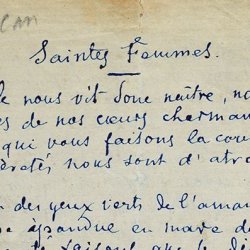 CAN
Saintes Femmes.
le nous vit donc naître, no
es de nos cœurs charman
qui vous faisons la cou
crètes, nous sont d'atro
des yeux verts de l'ama
épandue en mare d
faisons